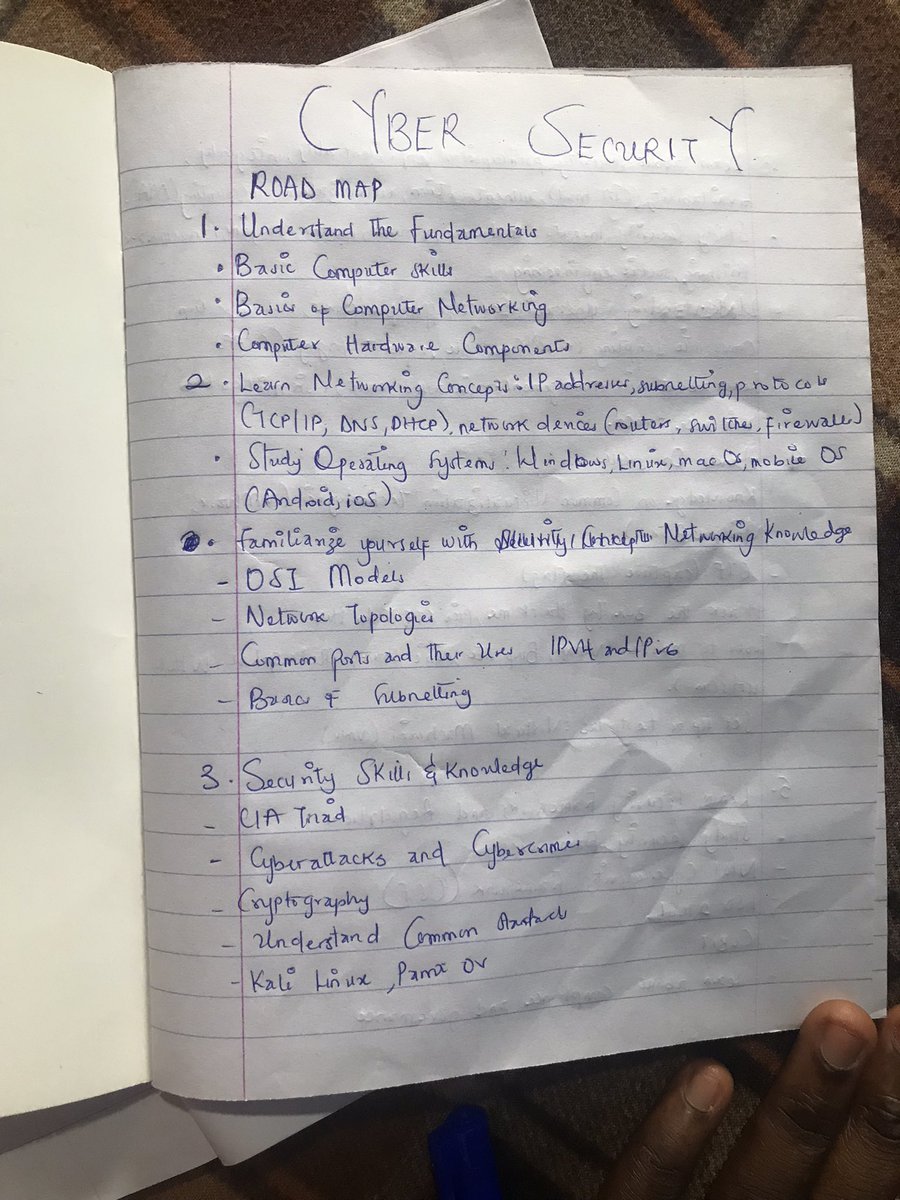 CYBER SECURITY
ROAD MAP
1. Understand the Fundamentals
• Basic Computer skills
• Basics of Computer Networking
• Computer Hardware Components
2. Learn Networking Concepts: IP addresses, subnetting, protocols
(TCP/IP, DNS, DHCP), network devices (routers, switches, firewalls)
• Study Operating Systems: Windows, Linux, mac OS, mobile OS
(Android, iOS)
• Familiarize yourself with Networking Knowledge
- OSI Models
- Network Topologies
- Common ports and their Uses IPV4 and IPv6
- Basics of Subnetting
3. Security Skills & Knowledge
- CIA Triad
- Cyberattacks and Cybercrimes
- Cryptography
- Understand Common
- Kali Linux,